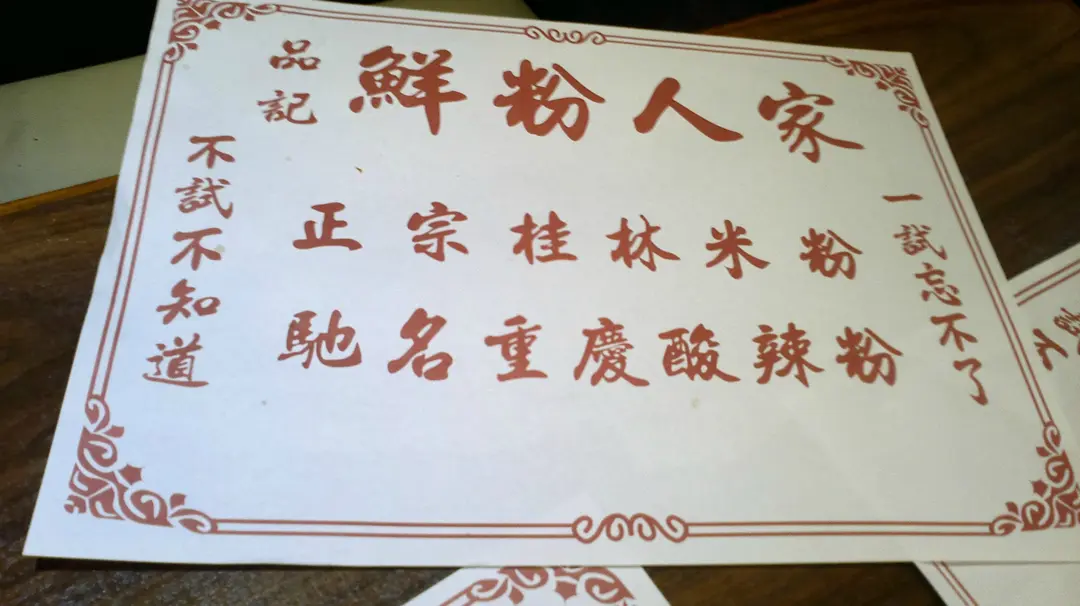 品記
鮮粉人家
不試不知道
正宗桂林米粉
馳名重慶酸辣粉
一試忘不了